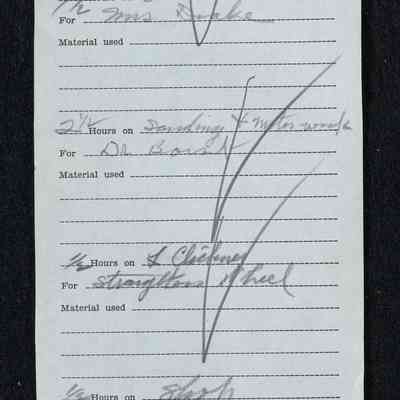 1/2
For Mrs Drake
Material used
2 1/2 Hours on Sanding & motor work
For Dr
Material used
1/2 Hours on
For Straighten Wheel
Material used
1/2 Hours on Shop